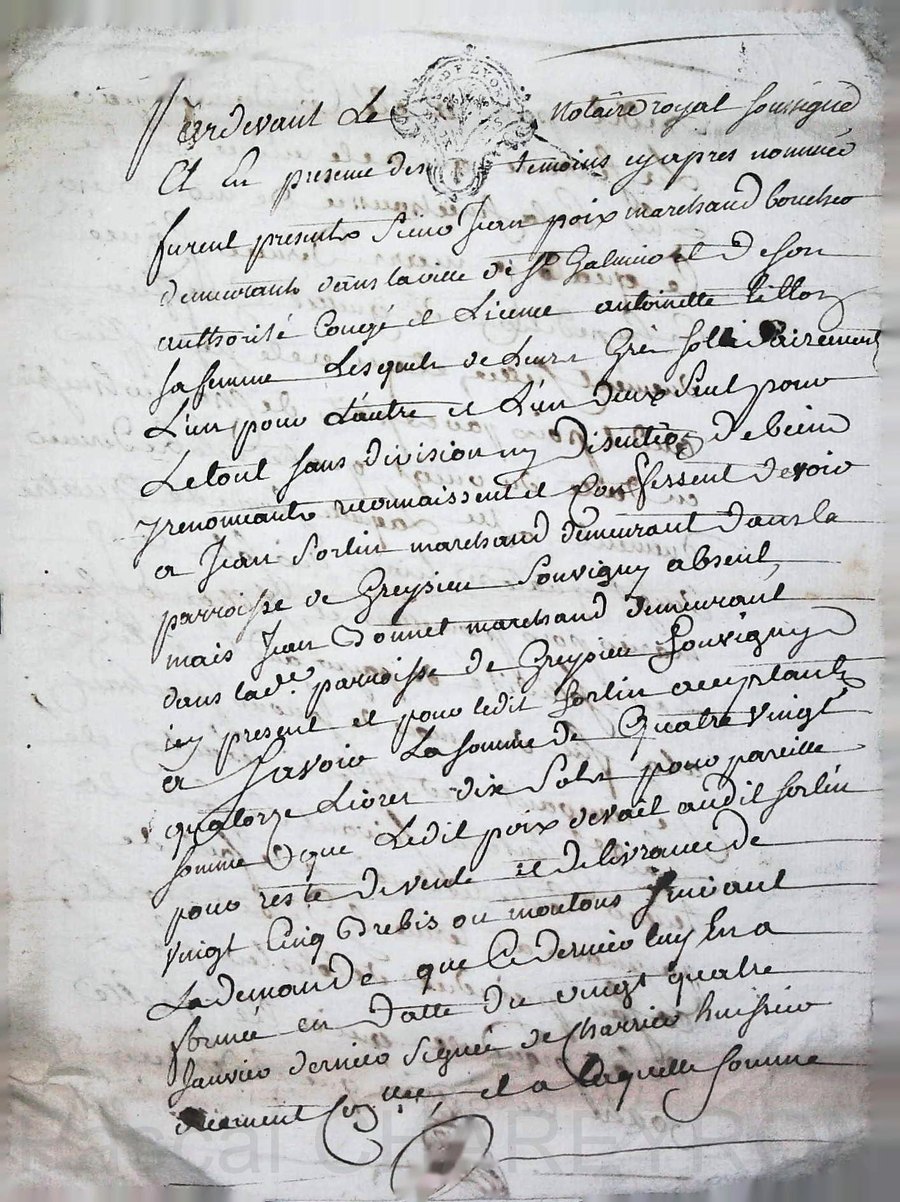 Pardevant Le notaire royal soussigné
Et En presence des temoins cyapres nommés
furent presents Sieur Jean poix marchand boucher
demeurant dans la ville de St Galmier et de son
authorité Congé et Licence antoinette
sa femme Lesquels de Leurs Gré sollidairement
L'un pour L'autre et L'un deux seul pour
Le tout sans division ny Discution de biens
y renonceants reconnaissent et Confessent devoir
a Jean Sorlin marchand demeurant dans la
parroisse de Greysieu Souvigny absent,
mais Jean Bonnet marchand demeurant
dans lade. parroisse de Greysieu Souvigny
icy present et pour ledit Sorlin acceptant
a Savoir La somme de Quatre vingt
quatorze Livres dix Sols pour pareille
somme que Ledit poix devait audit Sorlin
pour reste de vente et delivrance de
vingt Cinq Brebis ou moutons suivant
La demande que Ce dernier luy En a
formée en Datte du vingt quatre
Janvier dernier Signée de Charrier huissier
et a Laquelle somme
DE LYON
Pascal CHAREYRON